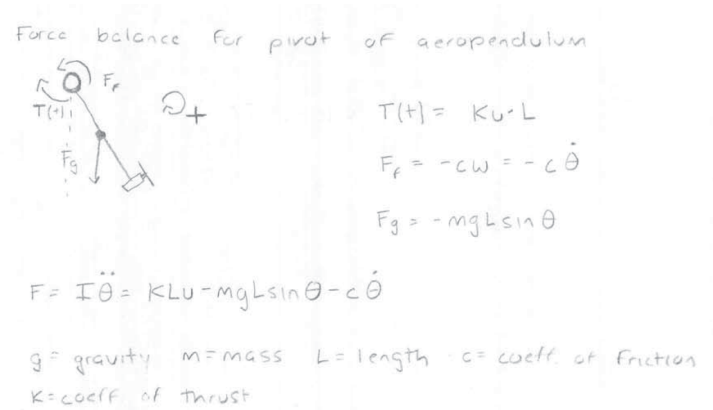 Force balance for pivot of aeropendulum
F_f
T(t)
+
F_g
T(t) = Ku·L
F_f = -cω = -cθ̇
F_g = -mgLsinθ
F = Iθ̈ = KLu-mgLsinθ-cθ̇
g = gravity m=mass L= length c= coeff. of friction
K=coeff of thrust